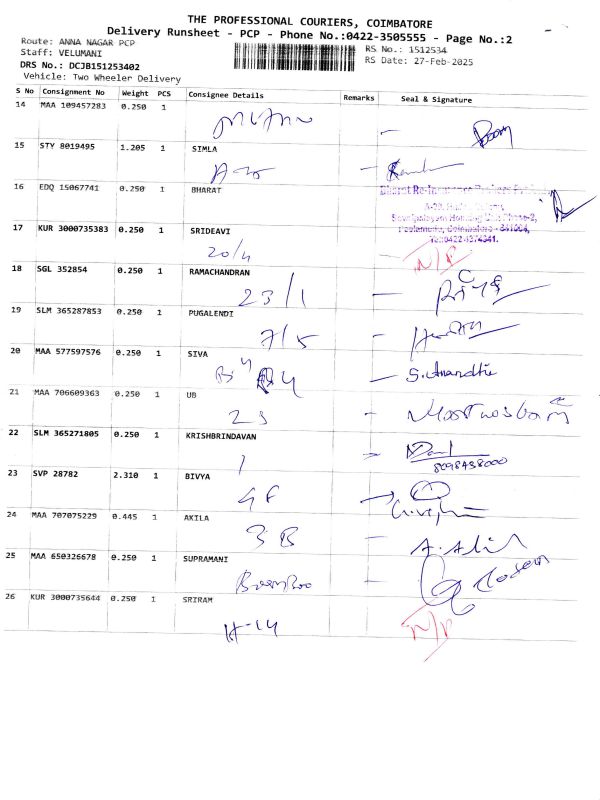 THE PROFESSIONAL COURIERS, COIMBATORE
Delivery Runsheet - PCP - Phone No.:0422-3505555 - Page No.:2
Route: ANNA NAGAR PCP
RS No.: 1512534
Staff: VELUMANI
RS Date: 27-Feb-2025
DRS No.: DCJB151253402
Vehicle: Two Wheeler Delivery
S No Consignment No Weight PCS Consignee Details Remarks Seal & Signature
14 MAA 109457283 0.250 1
15 STY 8019495 1.205 1 SIMLA
16 EDQ 15067741 0.250 1 BHARAT
17 KUR 3000735383 0.250 1 SRIDEAVI
20/4 N/P
18 SGL 352854 0.250 1 RAMACHANDRAN
23/1 -
19 SLM 365287853 0.250 1 PUGALENDI
7/5 -
20 MAA 577597576 0.250 1 SIVA
- S. Anandhi
21 MAA 706609363 0.250 1 UB
23 -
22 SLM 365271805 0.250 1 KRISHBRINDAVAN
1 -
8098438000
23 SVP 28782 2.310 1 BIVYA
4F
24 MAA 707075229 0.445 1 AKILA
3B -
25 MAA 650326678 0.250 1 SUPRAMANI
-
26 KUR 3000735644 0.250 1 SRIRAM
H-14 N/P